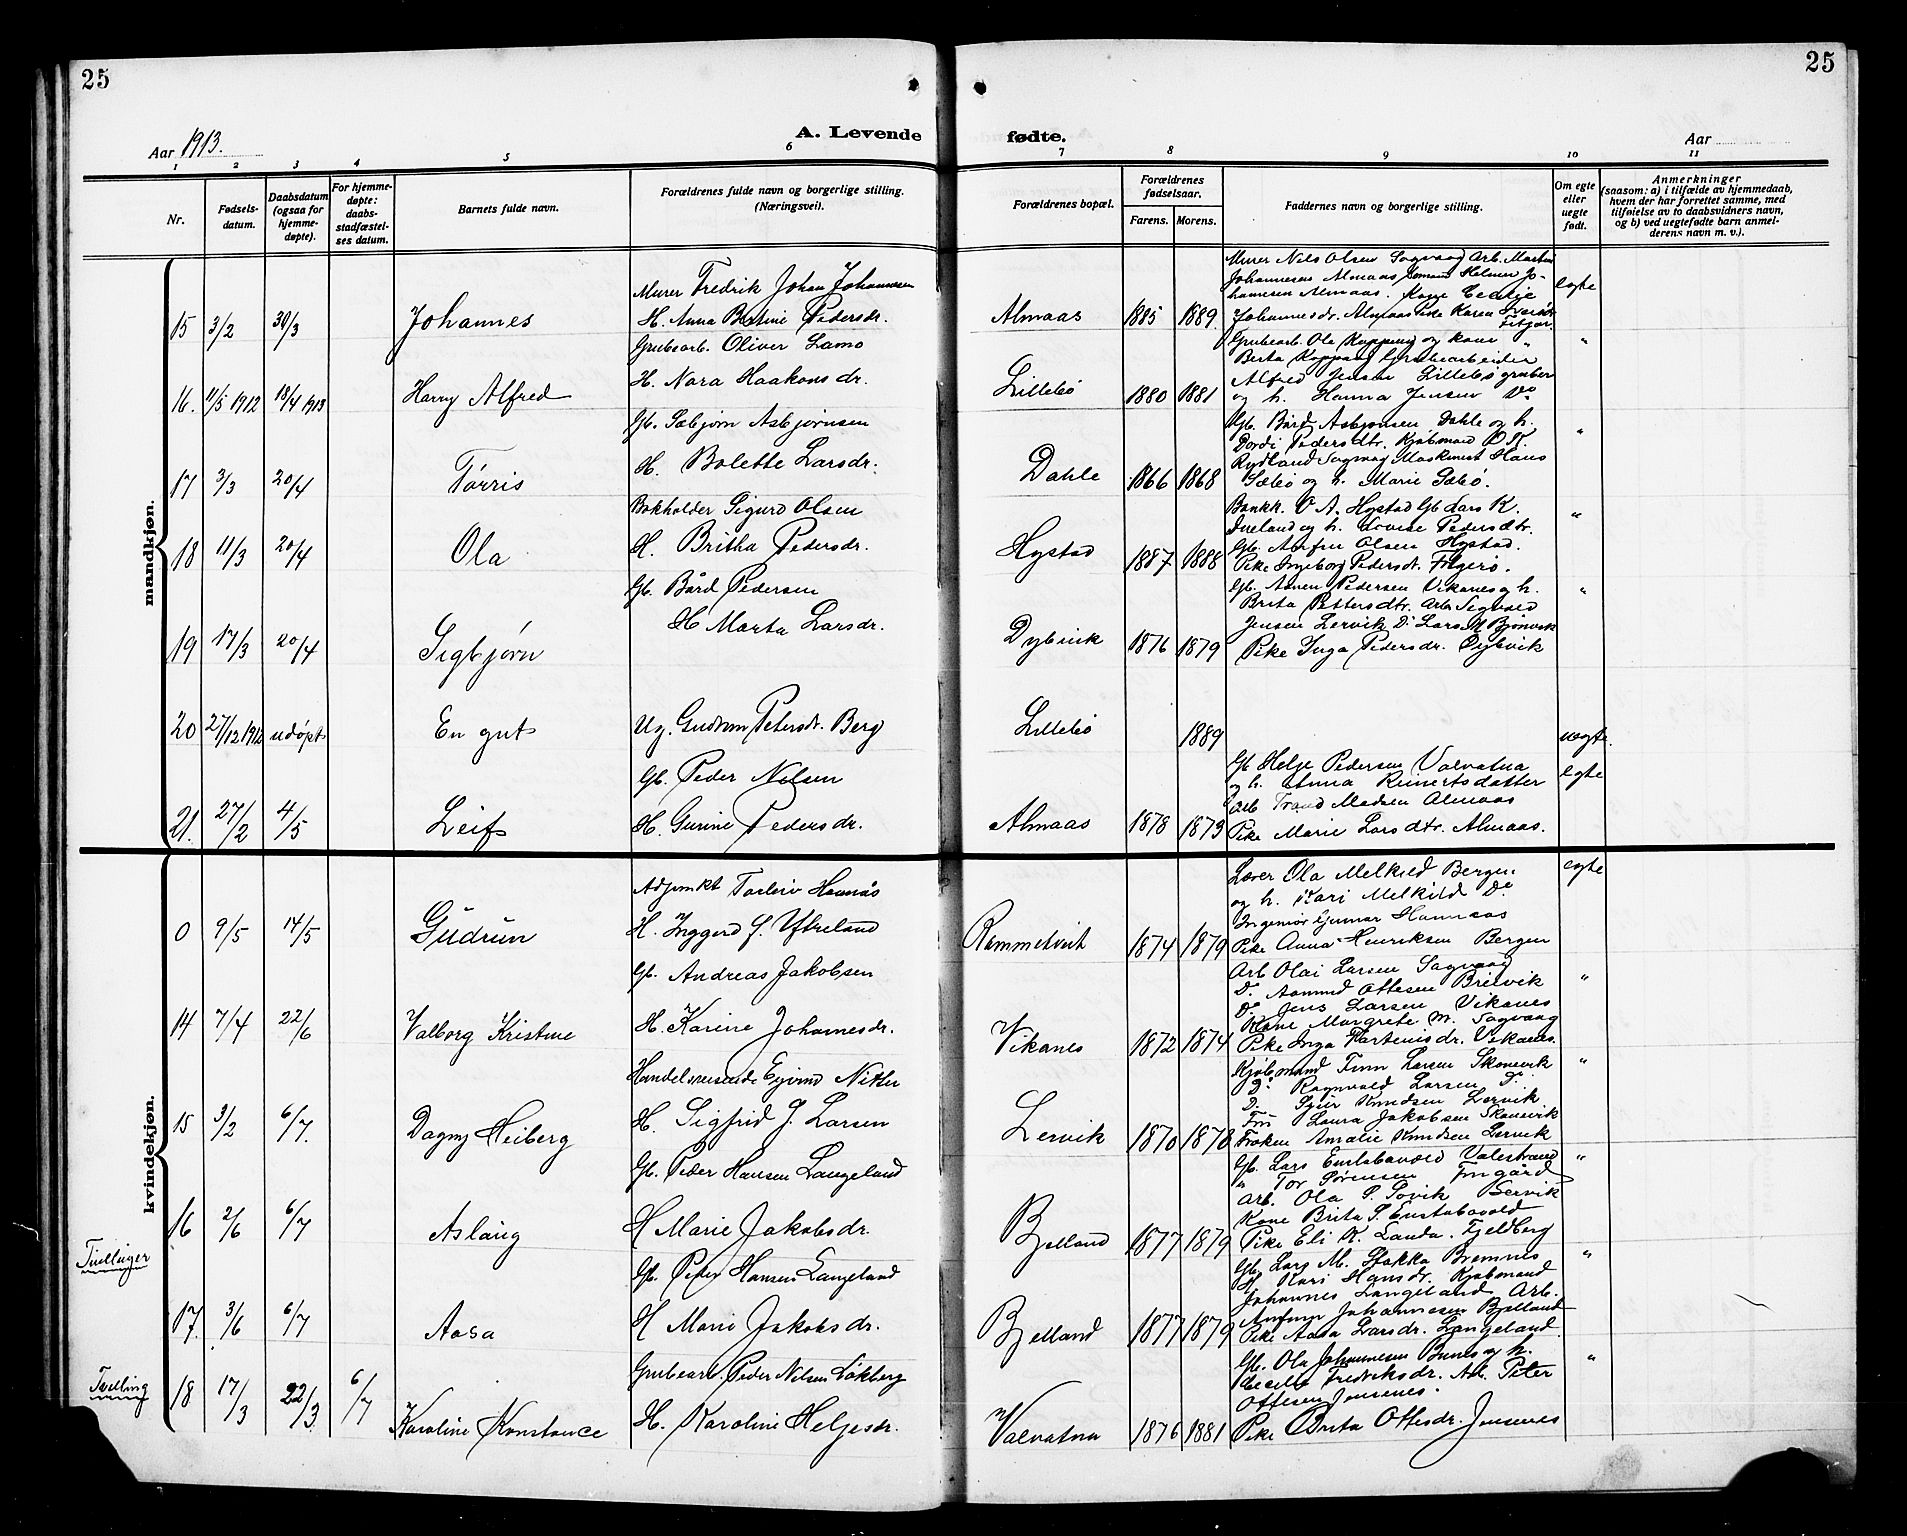 25
25
Aar 1913.
A. Levende
fødte.
Aar
1 2 3 4 5 6 7 8 9 10 11
Nr.
Fødselsdatum.
Daabsdatum (ogsaa for hjemmedøpte).
For hjemmedøpte: daabsstadfæstelses datum.
Barnets fulde navn.
Forældrenes fulde navn og borgerlige stilling. (Næringsvei).
Forældrenes bopæl.
Forældrenes fødselsaar.
Farens. Morens.
Faddernes navn og borgerlige stilling.
Om egte eller uegte født.
Anmerkninger
(saasom: a) i tilfælde av hjemmedaab,
hvem der har forrettet samme, med
tilføielse av to daabsvidners navn,
og b) ved uegtefødte barn anmel-
derens navn m. v.).
mandkjøn.
15 3/2 30/3 Johannes
Murer Fredrik Johan Johannesen
H. Anna Bertine Pedersdr.
Almaas 1885 1889
Murer Nils Olsen Sagvaag Arb. Martin
Johannesen Almaas Helmer Jo-
hannesen Almaas. Kone
Johannesdr. Almaas Pike Karen
egte
16. 11/5 1912 13/4 1913 Harry Alfred
Grubearb. Oliver Lamo
H. Nora Haakonsdr.
Lillebö 1880 1881
Grubearb. Ola Koppang og kone
Berta Koppang Grubearbeider
Alfred Jensen Lillebö gruber
og h. Hanna Jensen Do
"
17 3/3 20/4 Tórris
Gb. Sæbjörn Asbjörnsen
H. Bolette Larsdr.
Dahle 1866 1868
Gb. Bård Asbjörnsen Dahle og h.
Dordi Pedersdtr. Kjöbmand O. K.
Rydland Sagvaag Maskinist Hans
Sæbö og h. Marie Sæbö.
"
18 11/3 20/4 Ola
Bokholder Sigurd Olsen
H. Britha Pedersdr.
Hystad 1887 1888
Bankk. O. A. Hystad Gb Lars K.
og h. Lovise Pedersdtr.
Gb. Olsen Hystad.
Pike Ingeborg Pedersdt.
"
19 17/3 20/4 Sigbjørn
Gb. Bård Pedersen
H Marta Larsdr.
Dybvik 1876 1879
Gb. Pedersen Vikanes og h.
Brita Pettersdtr. Arb. Sigvald
Jensen Lervik Do Lars M
Pike Inga Pedersdr. Dybvik
"
20 27/12 1912 udöpt En gut
Ug. Gudrun Petersdr. Berg
Lillebö 1889
uegte.
21. 27/2 4/5 Leif
Gb. Peder Nelsen
H. Gurine Pedersdr.
Almaas 1878 1873
Gb Helge Pedersen Valvatna
og h. Anna Reinertsdatter
Arb Trond Madsen Almaas
Pike Marie Larsdtr. Almaas.
egte
kvindekjøn.
0 9/5 14/5 Gudrun
Adjunkt Torleiv Hannås
H. Inggerd G. Ystreland
Rommetveit 1874 1879
Lærer Ola Melkild Bergen
og h. Kari Melkild Do
Ingeniör Gunnar Hannaas
Pike Anna Henriksen Bergen
egte
14 7/4 22/6 Valborg Kristine
Gb. Andreas Jakobsen
H. Karine Johannesdr.
Vikanes 1872 1874
Arb Olai Larsen Sagvaag
Do. Aamund Ottesen Breivik
Do. Jens Larsen Vikanes
Kone Margrete M. Sagvaag
Pike Inga Martinisdr. Vikanes.
"
15 3/2 6/7. Dagny Heiberg
Handelsreisende Eyvind Nitter
H. Sigfrid J. Larsen
Lervik 1870 1878
Kjöbmand Finn Larsen Skonevik
Do. Ragnvald Larsen Do.
Do. Sjur Knudsen Lervik
Fru Laura Jakobsen Skonevik
Fröken Amalie Knudsen Lervik
"
16 2/6 6/7 Aslaug
Gb. Peder Hansen Langeland
H Marie Jakobsdr.
Bjelland 1877 1879
Gb. Lars Eustabavold Valestrand
" Tor Sørensen
Arb. Ola P. Lervik
Kone Brita S. Eustabavold
Pike Eli K. Landa. Fjeldberg
"
Tvillinger
17. 3/6 6/7 Aasa
Gb. Peder Hansen Langeland
H Marie Jakobsdr.
Bjelland 1877 1879
Gb. Lars M. Stokka Bremnes
H Kari Hansdr. Kjöbmand
Johannes Langeland Arb.
Johannesen Bjelland
Pike Aasa Larsdr. Langeland.
"
Tvilling
18 17/3 22/3. 6/7 Karoline Konstance
Grubearb. Peder Nilsen Lökberg
H. Karoline Helgesdr.
Valvatna 1876 1881
Gb. Ola Johannesen og h.
Cecilie Fredriksdr. Arb. Peter
Ottesen Jensenes.
Pike Brita Ottesdr. Jensenes
"